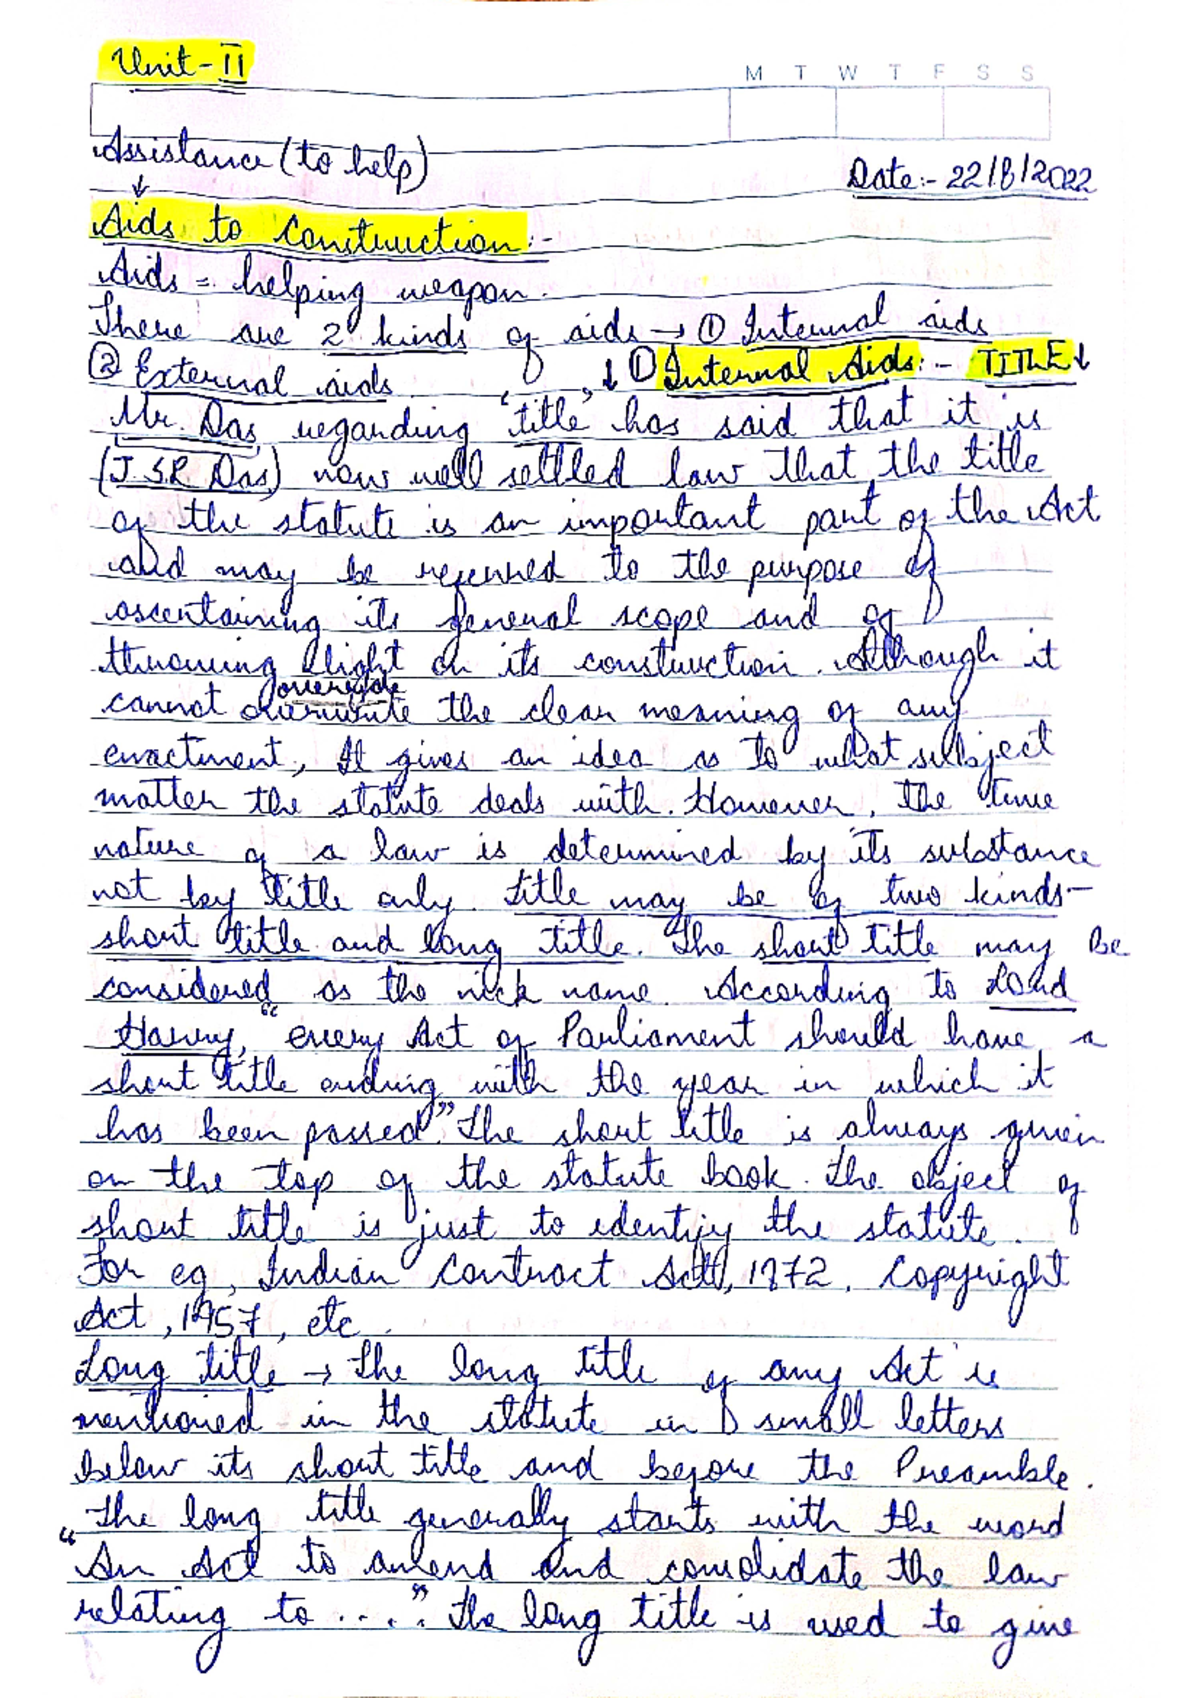 Unit-II
M T W T F S S
Assistance (to help)
Date:- 22/8/2022
↓
Aids to Construction:-
Aids = helping weapon.
There are 2 kinds of aids → ① Internal aids
② External aids ↓ ① Internal Aids:- TITLE↓
Mr. Das regarding 'title' has said that it is
(J.S.R Das) now well settled law that the title
of the statute is an important part of the Act
and may be referred to the purpose of
ascertaining its general scope and of
throwing light on its construction. Although it
override
cannot overwrite the clear meaning of any
enactment, It gives an idea as to what subject
matter the statute deals with. However, the true
nature of a law is determined by its substance
not by title only. title may be of two kinds-
short title and long title. The short title may be
considered as the nick name. According to Lord
Harry, "every Act of Parliament should have a
short title ending with the year in which it
has been passed" The short title is always given
on the top of the statute book. The object of
short title is just to identify the statute.
For eg, Indian Contract Act, 1872, Copyright
Act, 1957, etc.
Long title → The long title of any Act is
mentioned in the statute in small letters
below its short title and before the Preamble.
The long title generally starts with the word
"An Act to amend and consolidate the law
relating to ....". The long title is used to give